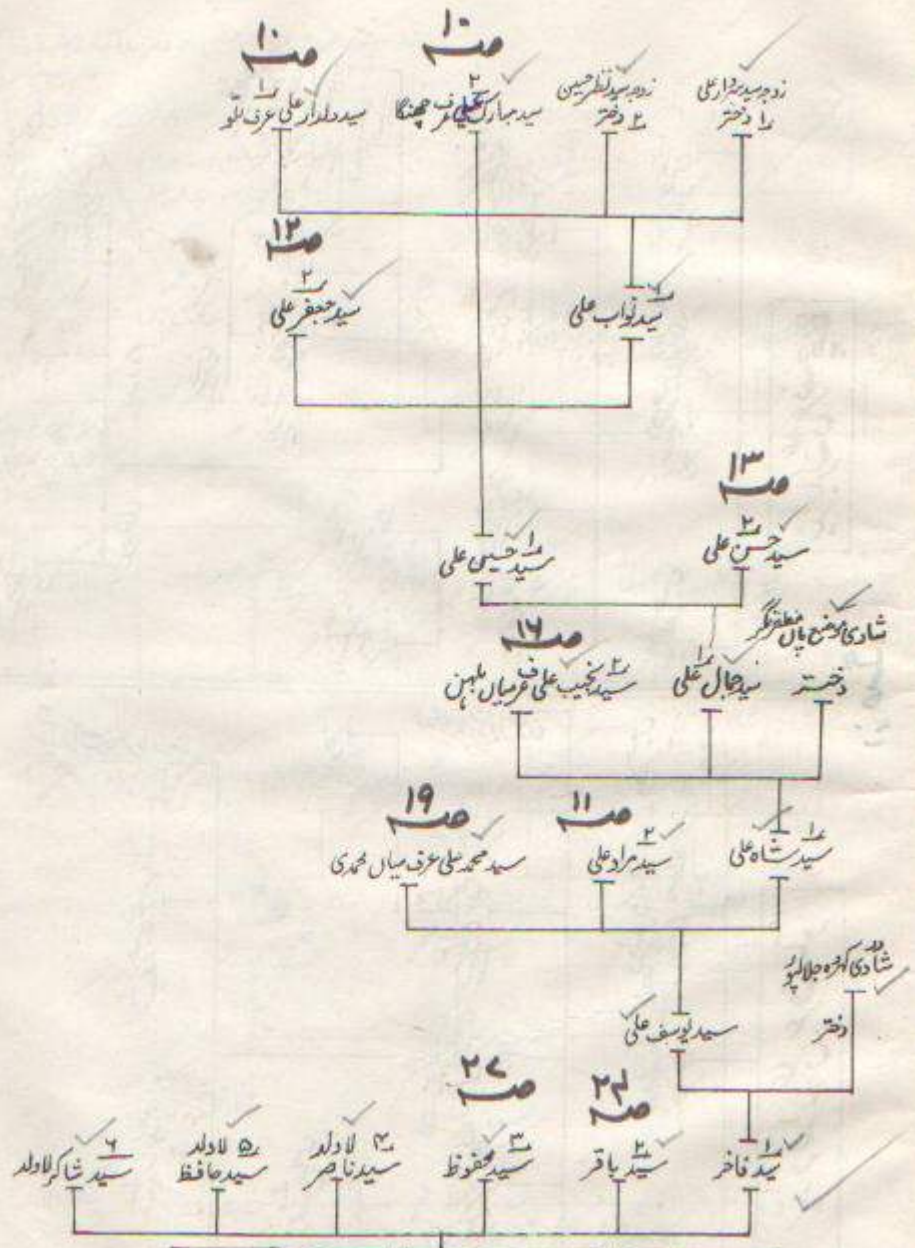 صـ۱۰
صـ۱۰
زوجہ سید سردار علی
۱ دختر
زوجہ سید نظر حسین
۲ دختر
۲
سید مبارک علی عرف چھنگا
۱
سید دلدار علی عرف
صـ۱۲
۲
سید جعفر علی
۱
سید نواب علی
صـ۱۳
۲
سید حسن علی
۱
سید حسین علی
شادی موضع مظفر نگر
دختر
۱
سید جمال علی
صـ۱۶
۲
سید نجیب علی عرف میاں
صـ۱۹
صـ۱۱
۱
سید شاہ علی
۲
سید مراد علی
سید محمد علی عرف میاں محمدی
شادی جلالپور
دختر
سید یوسف علی
صـ۲۷
صـ۲۴
۱
سید فاخر
۲
سید باقر
۳
سید محفوظ
۴ لاولد
سید ناصر
۵ لاولد
سید حافظ
۶
سید شاکر لاولد